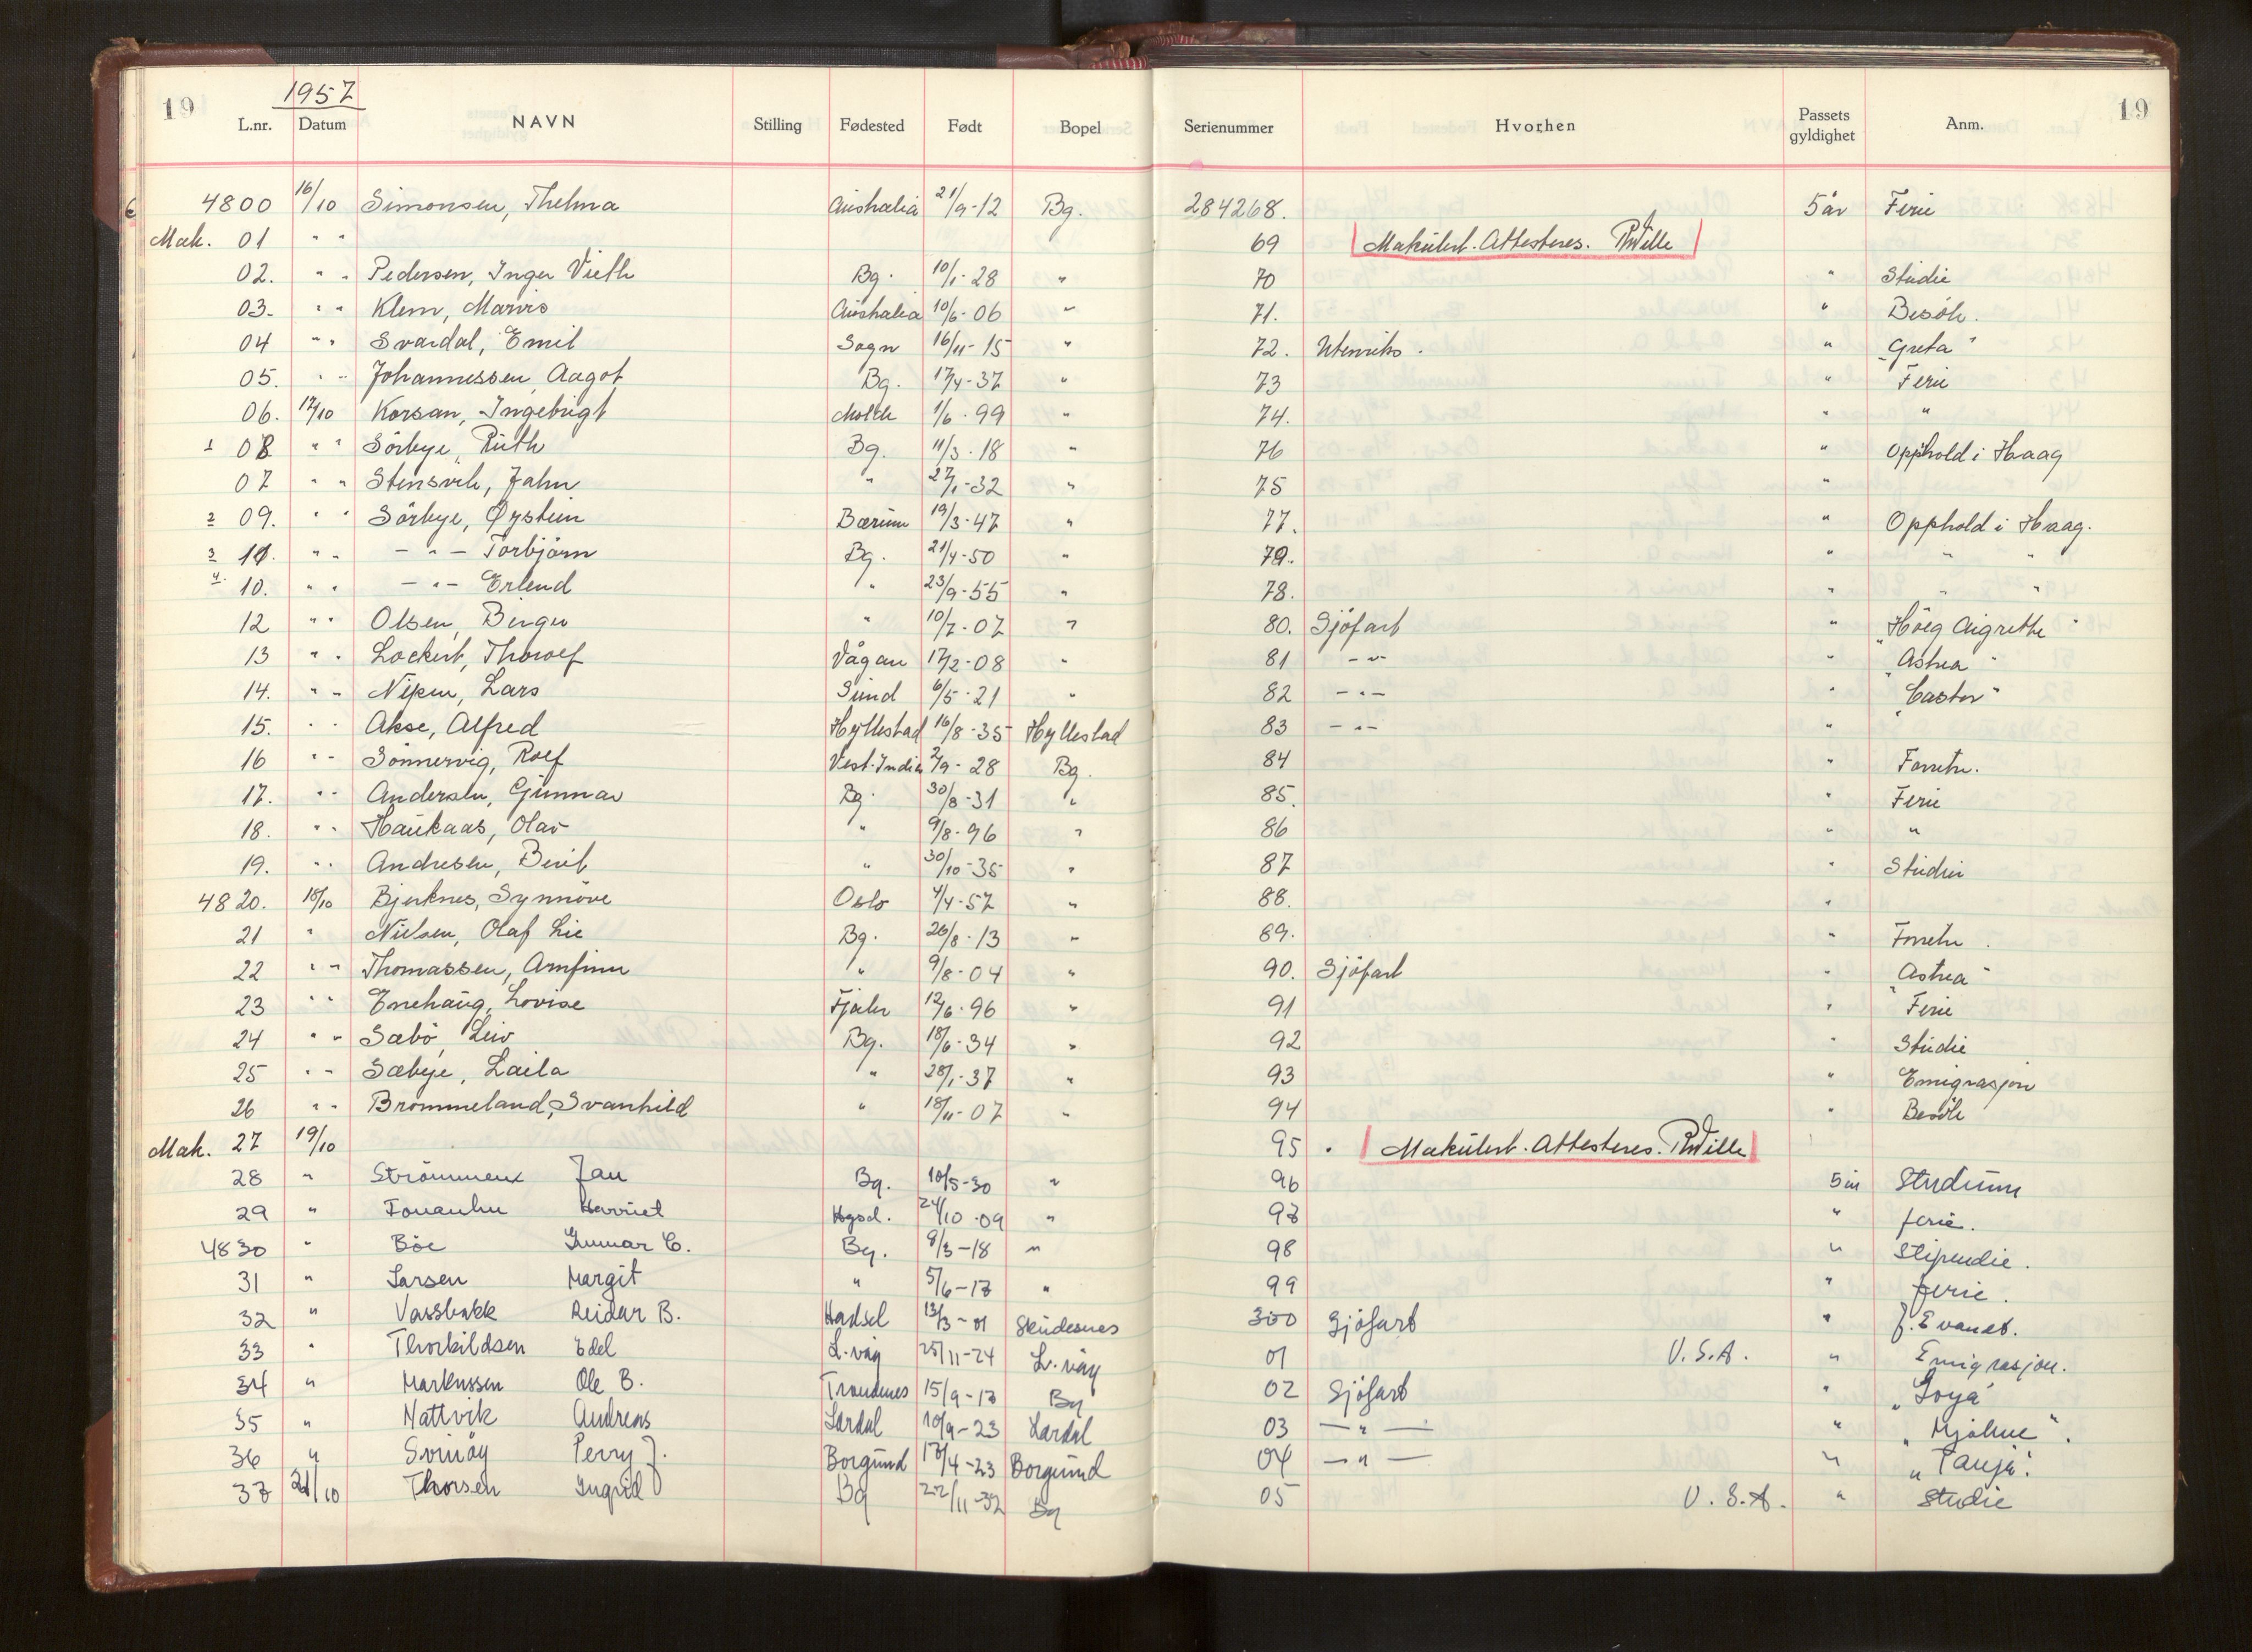 19 1957 19
L.nr. Datum NAVN Stilling Fødested Født Bopel Serienummer Hvorhen Passets gyldighet Anm.
4800 16/10 Simonsen, Thelma Australia 21/9-12 Bg. 284268. 5 år Ferie
Mak. 01 " " 69 Makulert. Attesteres.
02. " " Pedersen, Inger Vieth Bg. 10/1-28 " 70 " Studie
03. " " Klem, Marvis Australia 10/6-06 " 71. " Besök.
04 " " Svardal, Emil Sogn 16/11-15 " 72. Utenriks. " "Greta"
05. " " Johannessen, Aagot Bg. 17/4-37 " 73 " Ferie
06. 17/10 Korsan, Ingebrigt Molde 1/6-99 " 74. " "
1 08 " " Sörbye, Ruth Bg. 11/3-18 " 76 " Opphold i Haag
07 " " Stensvik, Jahn " 27/1-32 " 75 "
2 09. " " Sörbye, Øystein Bærum 19/3-47 " 77. " Opphold i Haag.
3 11. " " - " - Torbjörn Bg. 21/4-50 " 79. " " "
4. 10. " " - " - Erlend " 23/9-55 " 78. " " "
12 " " Olsen, Birger " 10/7-07 " 80. Sjöfart " "Höeg Aigrette"
13 " " Lockert, Thorolf Vågan 17/2-08 " 81 - " - " "Astrea"
14. " " Nipen, Lars Sund 6/5-21 " 82 - " - " "Castor"
15. " " Akse, Alfred Hyllestad 16/8-35 Hyllestad 83 - " - "
16 " " Sönnervig, Rolf Vest-Indien 2/9-28 Bg. 84 " Forretn.
17. " " Andersen, Gunnar Bg. 30/8-31 " 85. " Ferie
18. " " Haukaas, Olav " 9/8-96 " 86 " "
19. " " Andresen, Berit " 30/10-35 " 87 " Studier
4820. 18/10 Bjerknes, Synnöve Oslo 4/4-57 " 88. "
21 " Nielsen, Olaf Lie Bg. 26/8-13 " 89. " Forretn.
22 " " Thomassen, Arnfinn " 9/8-04 " 90. Sjöfart " "Astrea"
23 " " Enehaug, Lovise Fjaler 12/6-96 " 91 " Ferie
24 " " Sæbö, Leiv Bg. 18/6-34 " 92 " Studie
25 " " Sæbye, Laila " 28/1-37 " 93 " Emigrasjon
26 " " Brommeland, Svanhild " 18/11-07 " 94 " Besök
Mak. 27 19/10 95. Makulert. Attesteres.
28 " Strömmen Jan Bg. 10/5-30 " 96 5 år Studium
29 " Harriet 24/10-09 " 97 " ferie.
4830 " Böe Gunnar C. Bg. 8/3-18 " 98 " Stipendie.
31 " Larsen Margit " 5/6-17 " 99 " ferie.
32 " Vassbakk Reidar B. Hadsel 13/3-01 Skudesnes 300 Sjöfart "
33 " Thorkildsen Edel L.våg 25/11-24 L.våg 01 U.S.A. " Emigrasjon.
34 " Markussen Ole B. Trondenes 15/9-17 Bg 02 Sjöfart " "Goya"
35 " Nattvik Andreas Lærdal 10/9-23 Lærdal 03 - " - " "Mjölne".
36 " Svinöy Perry J. Borgund 17/4-23 Borgund 04 - " - " "Tanja".
37 21/10 Thorsen Ingrid Bg 22/11-32 Bg 05 U.S.A. " Studie